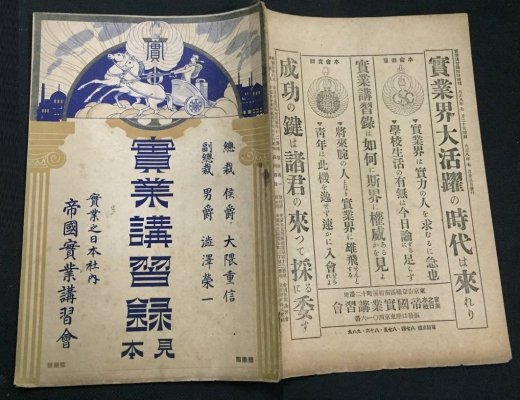 實業講習録
見本
總裁 侯爵 大隈重信
副總裁 男爵 澁澤榮一
實業之日本社内
帝國實業講習會
實業界大活躍の時代は來れり
實業界は實力の人を求むるに急也
學校生活の有無は今日論ずるに足らず
實業講習録は如何に斯界に權威かあるを見よ
青年は此機を逸せず速かに入會されよ
成功の鍵は諸君の來つて採るに委す
帝國實業講習會